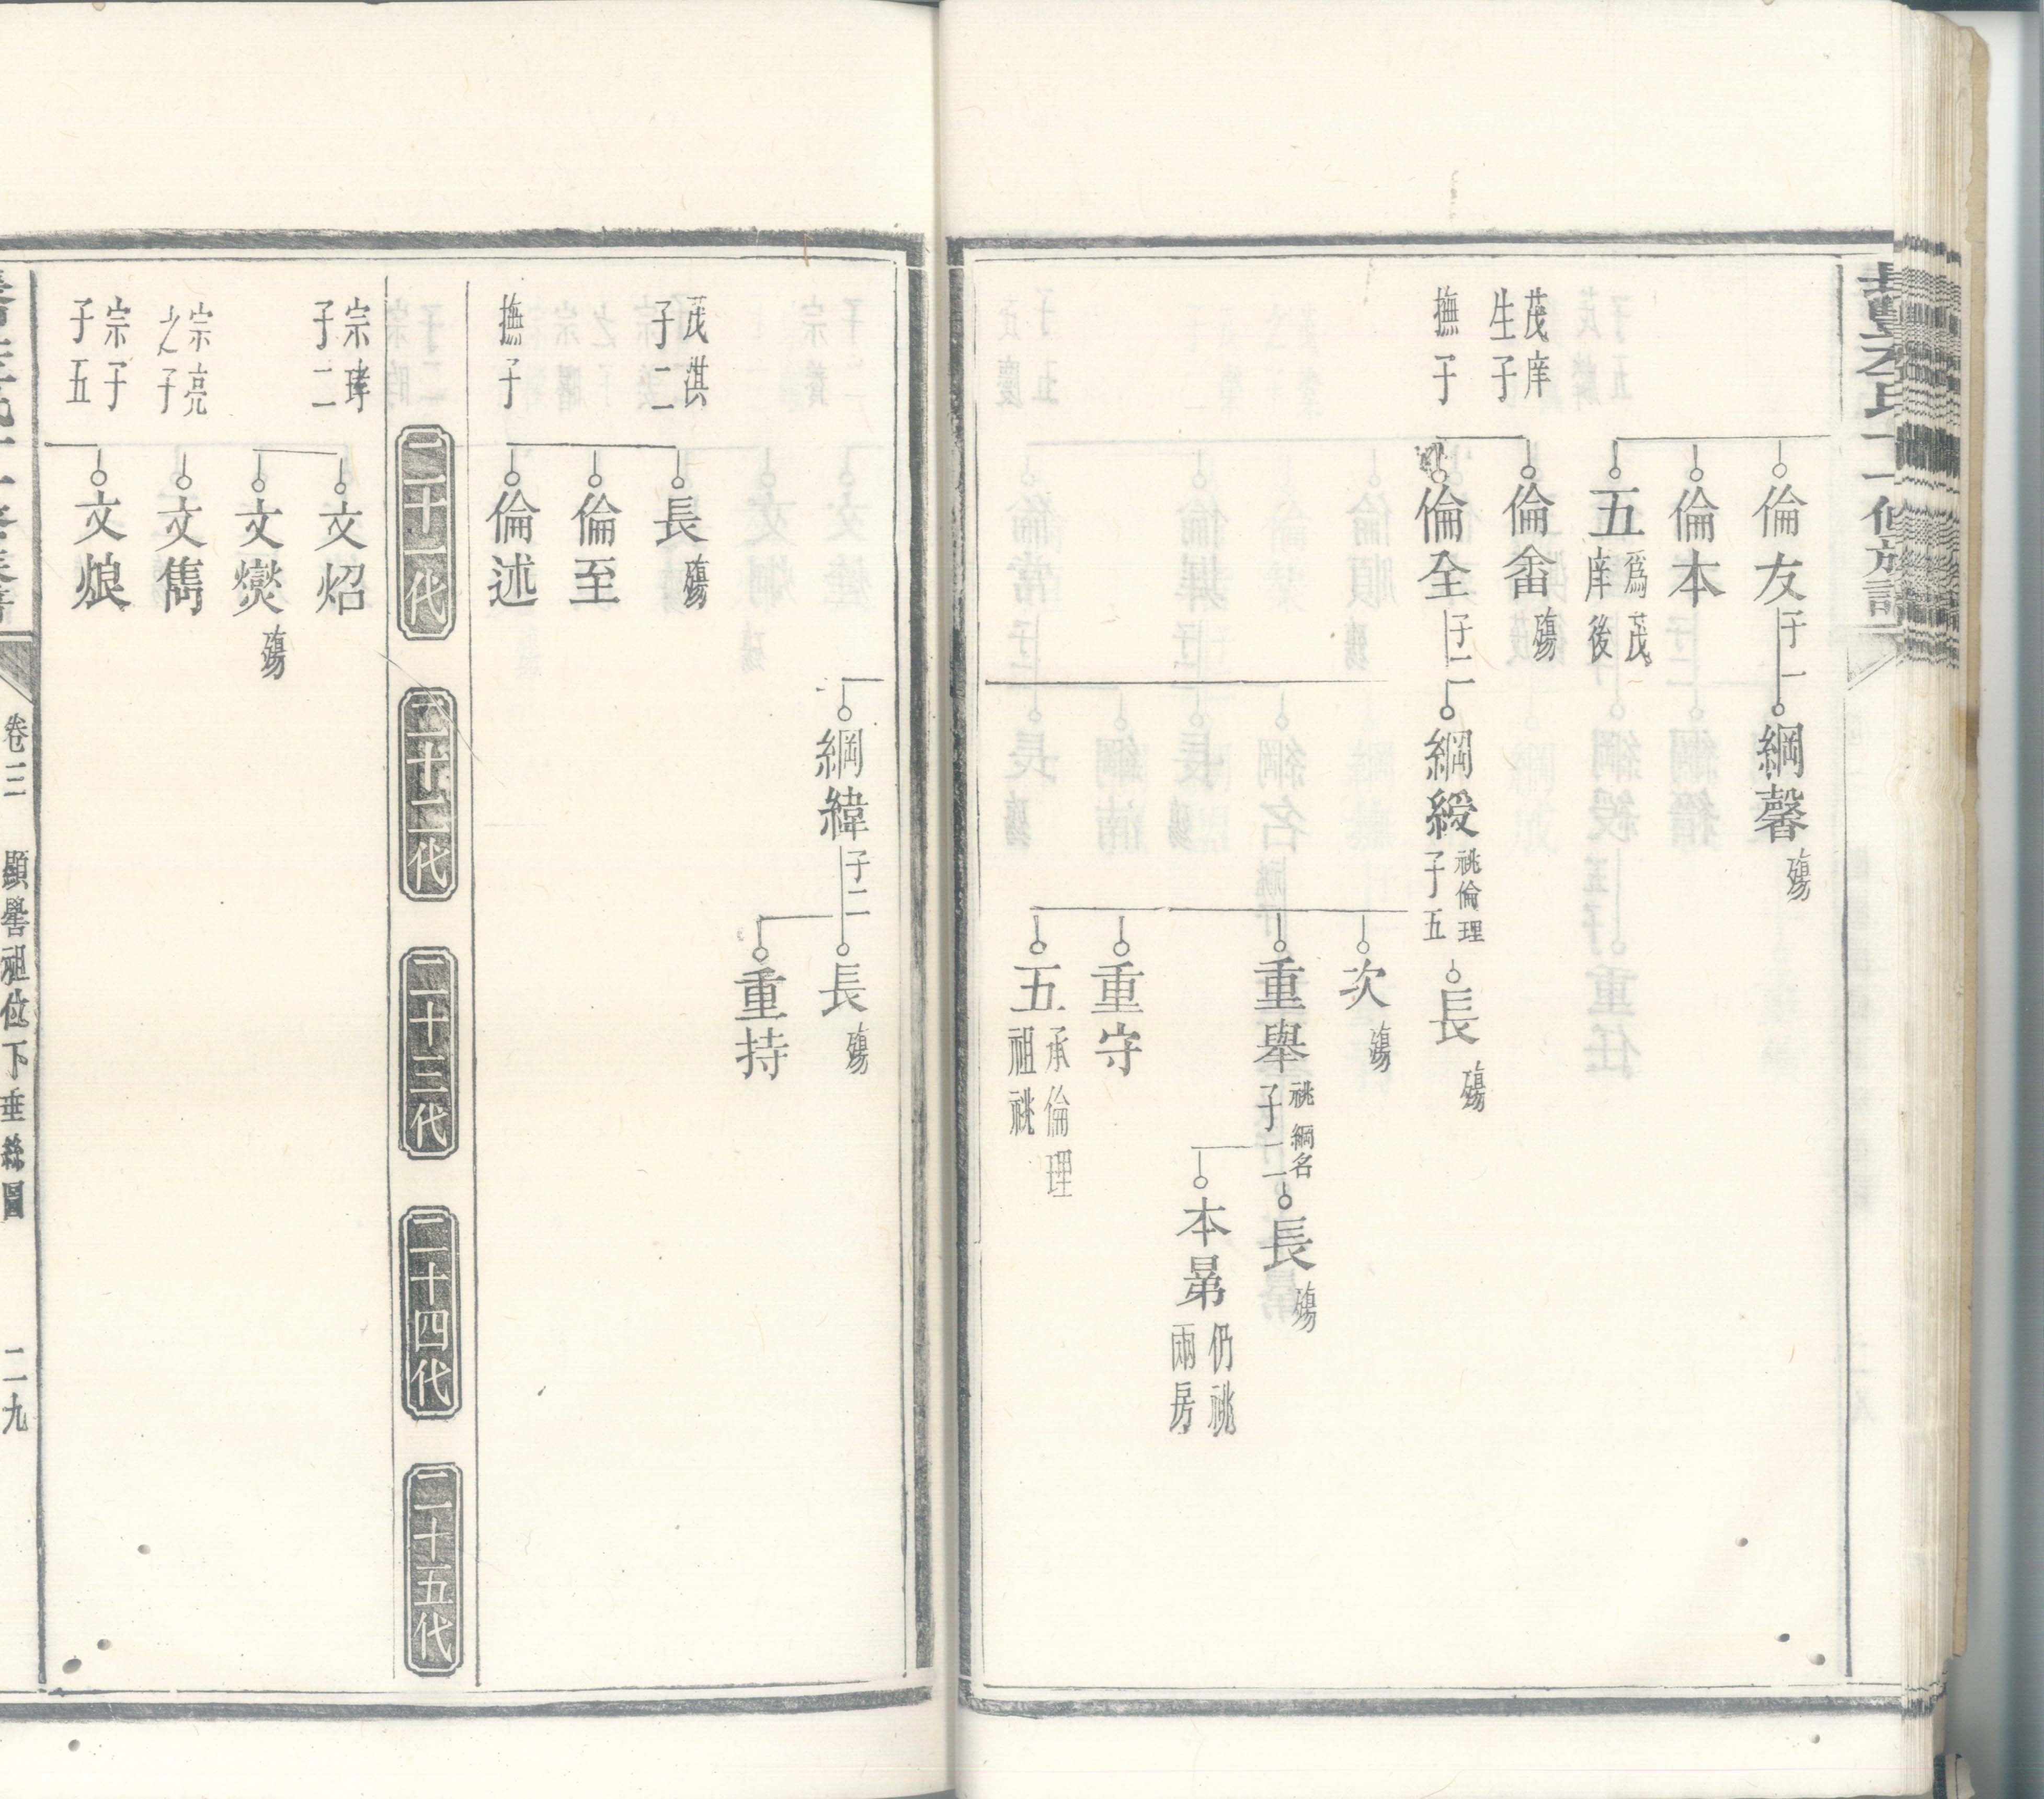 倫友
子一
綱馨
殤
倫本
五
爲茂
庠後
茂庠
生子
倫畬
殤
撫子
倫全
子二
綱綬
祧倫理
子五
長
殤
次
殤
重舉
祧綱名
子二
長
殤
本㬎
仍祧
兩房
重守
五
承倫理
祖祧
綱緯
子二
長
殤
重持
茂淇
子二
長
殤
倫至
撫子
倫述
二十一代
二十二代
二十三代
二十四代
二十五代
宗琫
子二
文炤
文爕
殤
宗亮
之子
文雋
宗子
子五
文烺
卷三
顯譽祖位下垂絲圖
二九